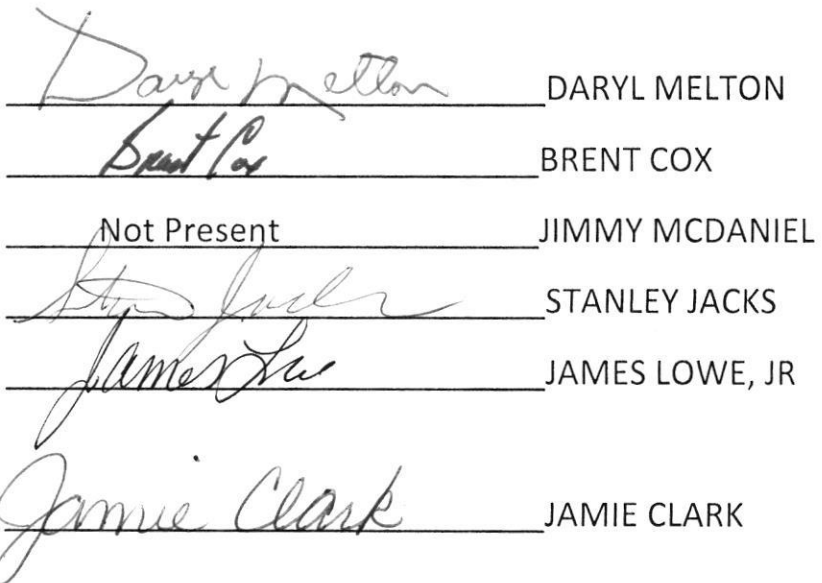 Daryl Melton DARYL MELTON
Brent Cox BRENT COX
Not Present JIMMY MCDANIEL
STANLEY JACKS
James Lowe JAMES LOWE, JR
Jamie Clark JAMIE CLARK